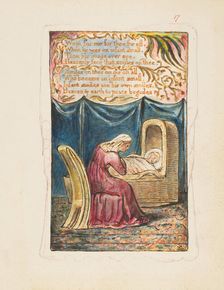 7
Wept for me for thee for all
When he was an infant small
Thou his image ever see.
Heavenly face that smiles on thee
Smiles on thee on me on all
Who became an infant small
Infant smiles are his own smiles.
Heaven & earth to peace beguiles